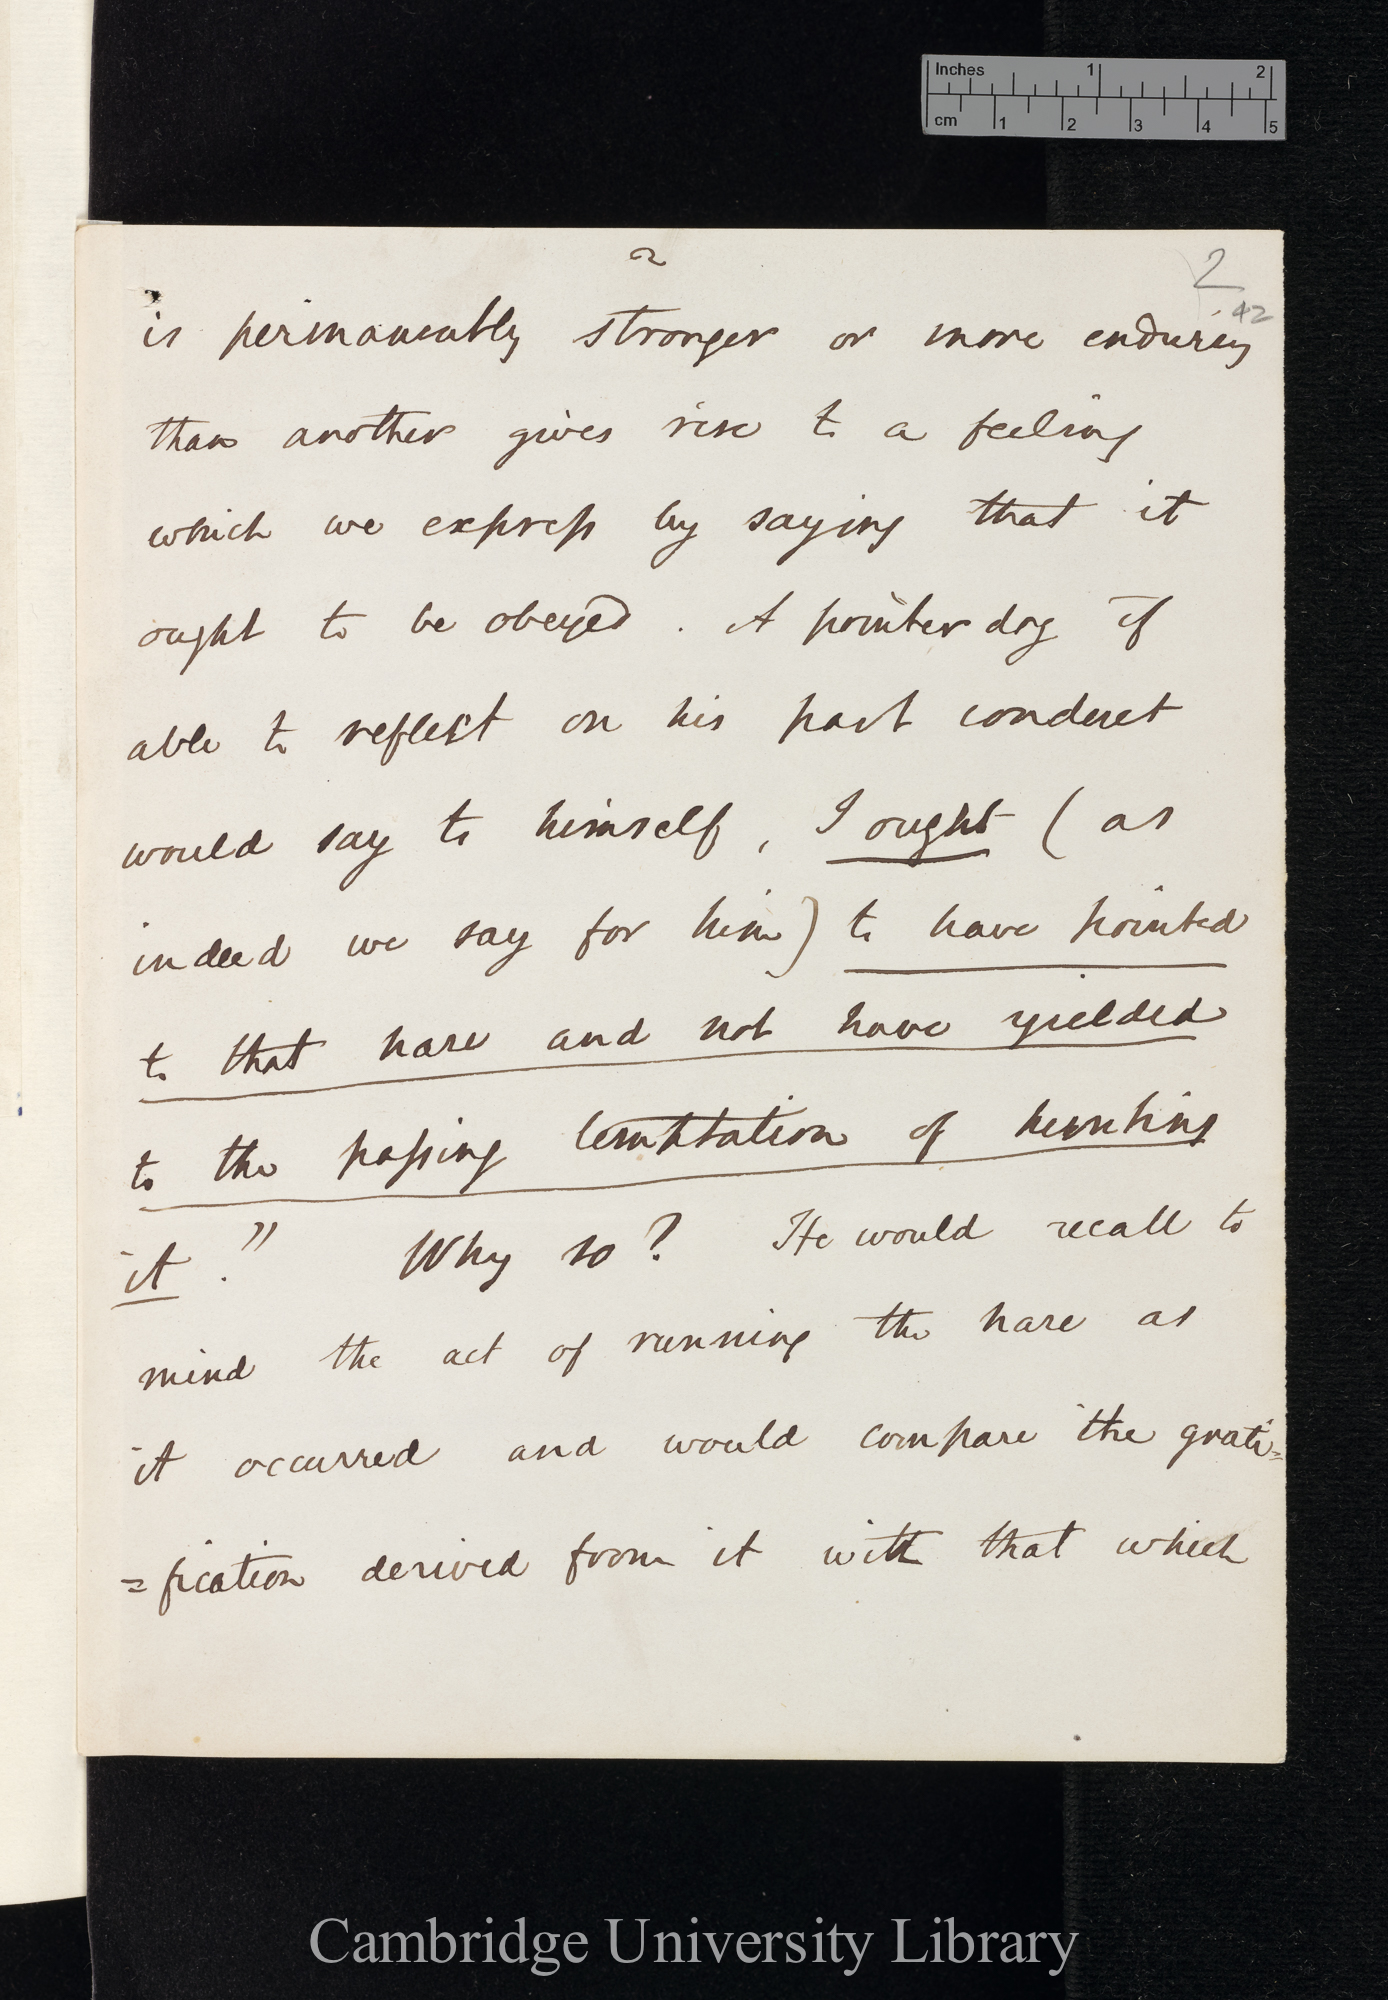 Inches 1 2
cm 1 2 3 4 5
2
2
42
is permanently stronger or more enduring
than another gives rise to a feeling
which we express by saying that it
ought to be obeyed. A pointer dog if
able to reflect on his past conduct
would say to himself, I ought (as
indeed we say for him) to have pointed
to that hare and not have yielded
to the passing temptation of hunting
it." Why so? He would recall to
mind the act of running the hare as
it occurred and would compare the grati=
=fication derived from it with that which
Cambridge University Library